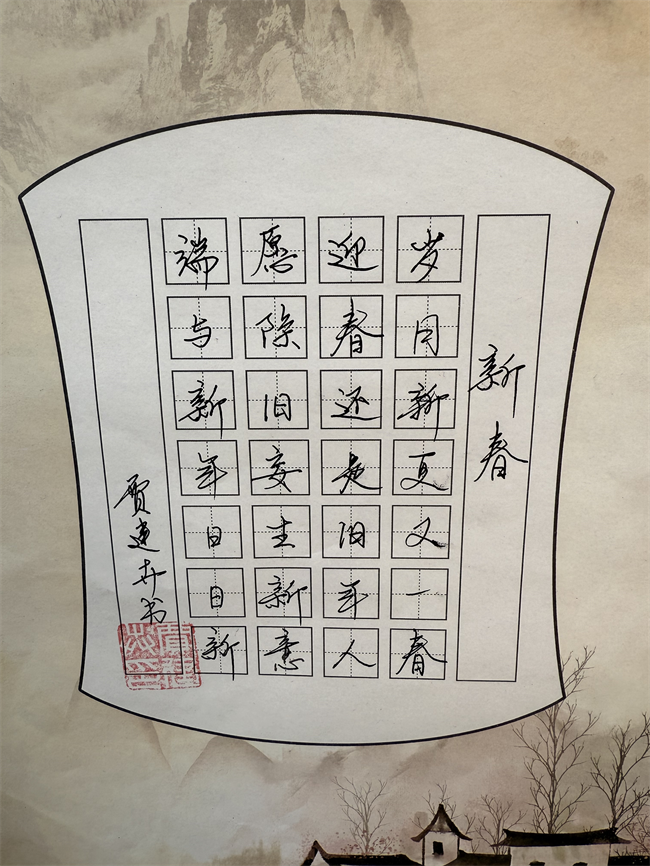 新春
岁月新更又一春
迎春还是旧年人
愿除旧妄生新意
端与新年日日新
贾书